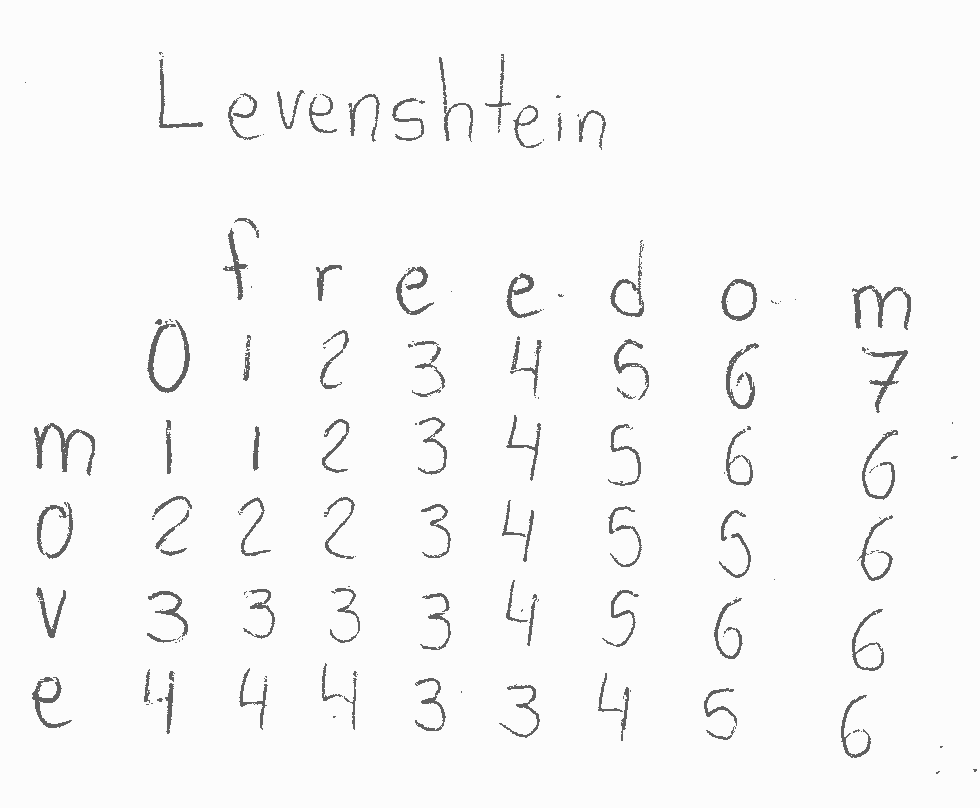 Levenshtein
f r e e d o m
0 1 2 3 4 5 6 7
m 1 1 2 3 4 5 6 6
o 2 2 2 3 4 5 5 6
v 3 3 3 3 4 5 6 6
e 4 4 4 3 3 4 5 6